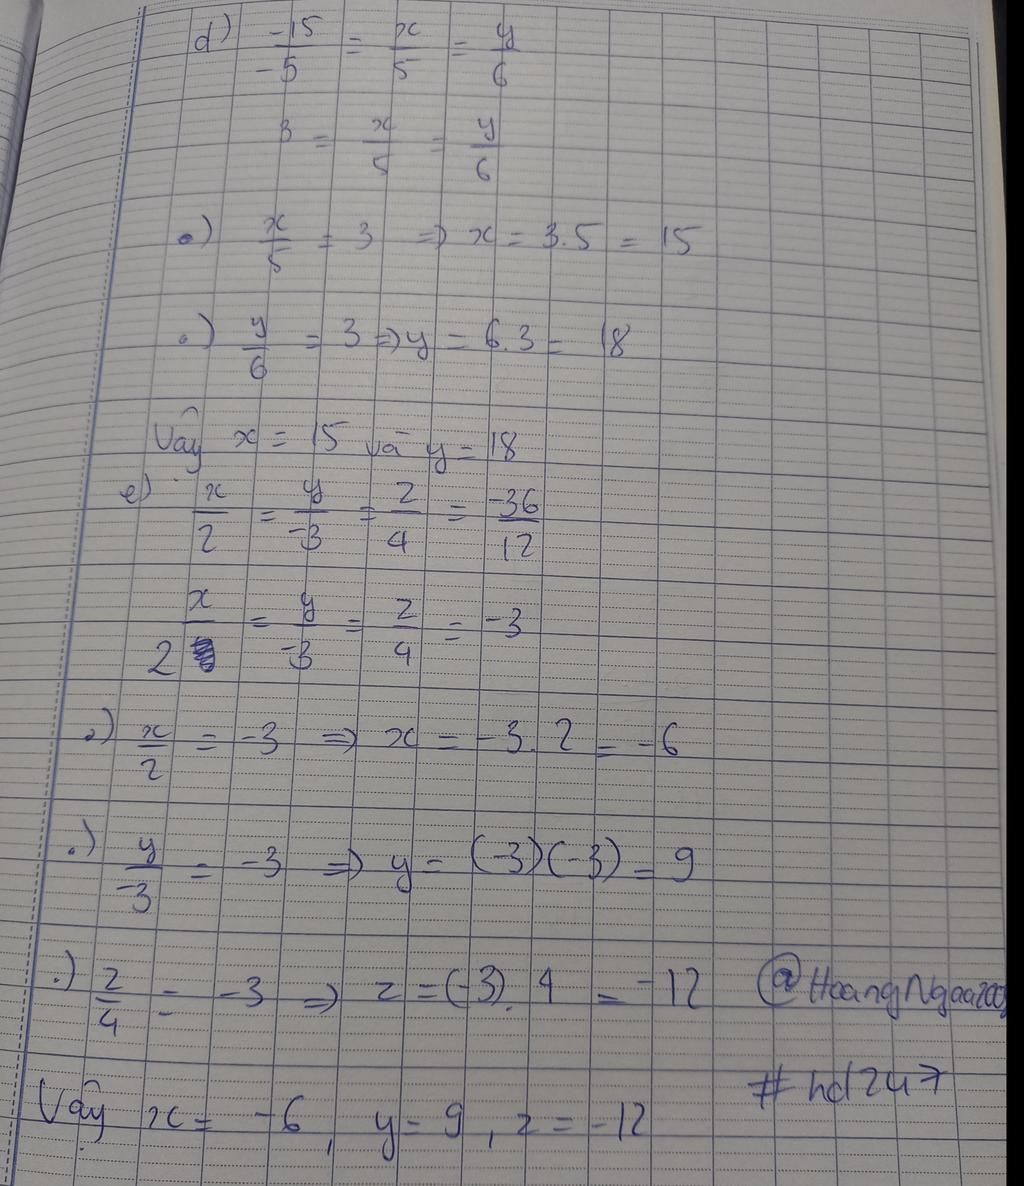 d) -15/-5 = x/5 = y/6
3 = x/5 = y/6
•) x/5 = 3 => x = 3.5 = 15
•) y/6 = 3 => y = 6.3 = 18
Vây x = 15 và y = 18
e) x/2 = y/-3 = z/4 = -36/12
x/2 = y/-3 = z/4 = -3
•) x/2 = -3 => x = -3.2 = -6
•) y/-3 = -3 => y = (-3)(-3) = 9
•) z/4 = -3 => z = (-3).4 = -12 @HoangNgaa
# hd247
Vây x = -6, y = 9, z = -12